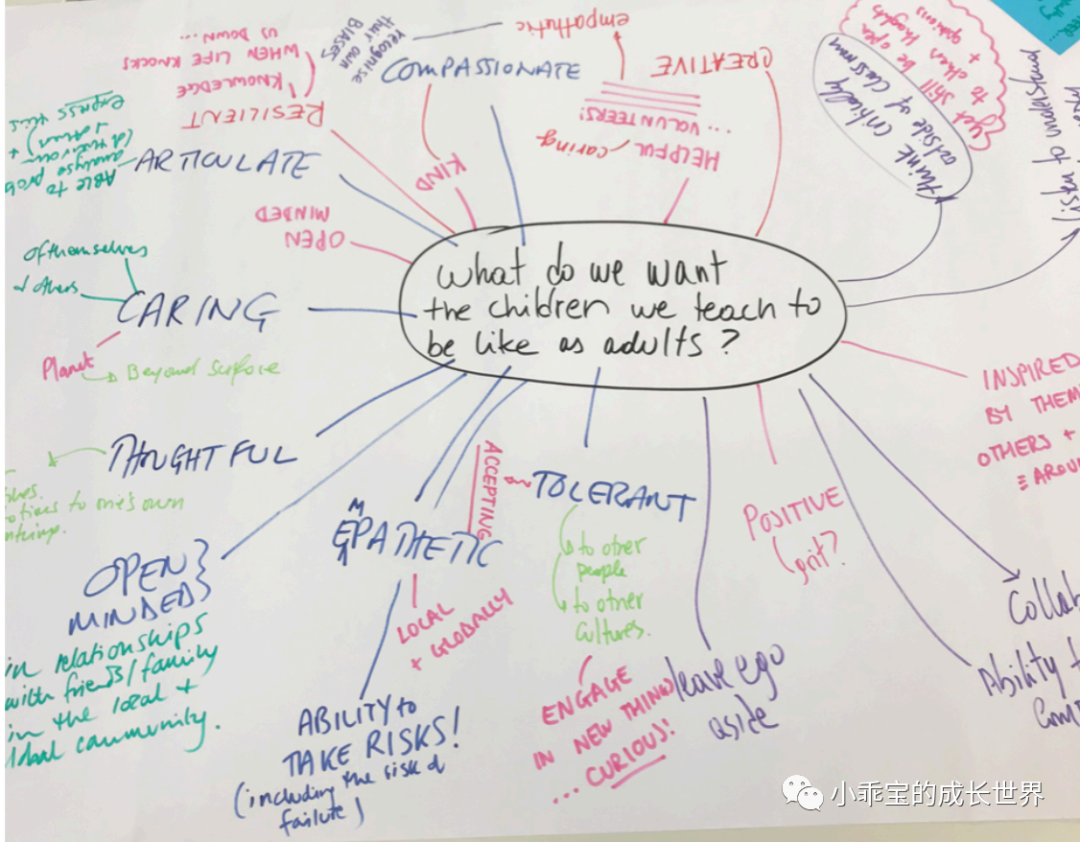 What do we want
the children we teach to
be like as adults?
recognise
their own
BIASES
empathetic
COMPASSIONATE
KIND
CREATIVE
HELPFUL, caring
... VOLUNTEERS!
RESILIENT
KNOWLEDGE
WHEN LIFE KNOCKS
US DOWN...
ARTICULATE
ABLE to
analyse prob
express this
OPEN
MINDED
think critically
outside of classroom
yet still be
open
to others thoughts
+ opinions
listen to understand
CARING
of themselves
+ others
Planet
Beyond surface
THOUGHTFUL
to one's own
OPEN
MINDED
in relationships
with friends/family
in the local +
community.
EMPATHETIC
LOCAL
+ GLOBALLY
ACCEPTING
TOLERANT
to other
people
to other
cultures.
ENGAGE
IN NEW THING
... CURIOUS!
ABILITY to
TAKE RISKS!
(including the risk of
failure)
leave ego
aside
POSITIVE
grit?
INSPIRED
BY THEM
OTHERS +
AROU
Collab
Ability t
Com
小乖宝的成长世界